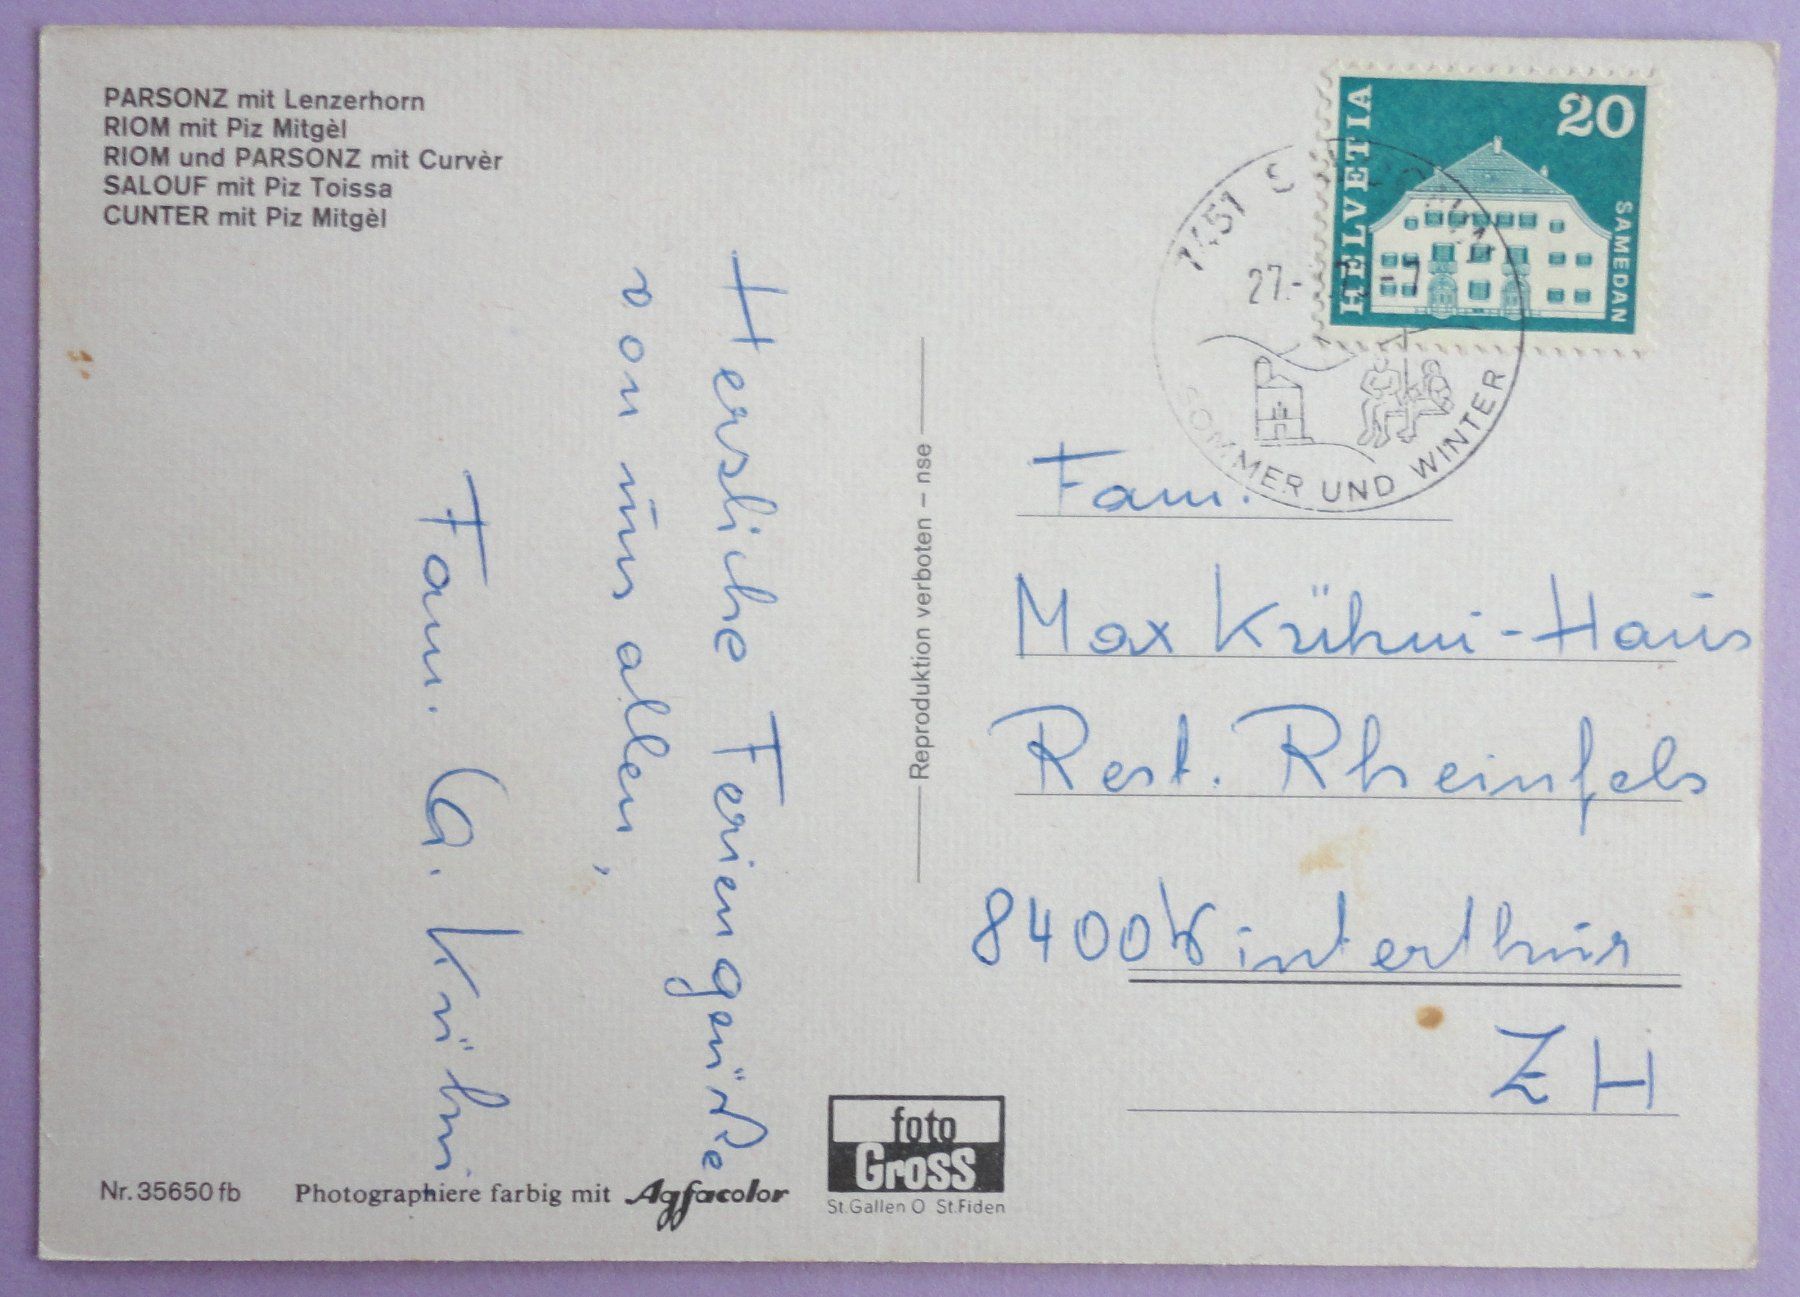 PARSONZ mit Lenzerhorn
RIOM mit Piz Mitgèl
RIOM und PARSONZ mit Curvèr
SALOUF mit Piz Toissa
CUNTER mit Piz Mitgèl
Herzliche Feriengrüße
von uns allen,
Fam. A. Krühni
Nr. 35650 fb
Photographiere farbig mit Agfacolor
Reproduktion verboten – nse
foto
Gross
St.Gallen O St.Fiden
HELVETIA
20
SAMEDAN
7451
27.-
-7
SOMMER UND WINTER
Fam.
Max Krühni-Haus
Rest. Rheinfels
8400 Winterthur
ZH